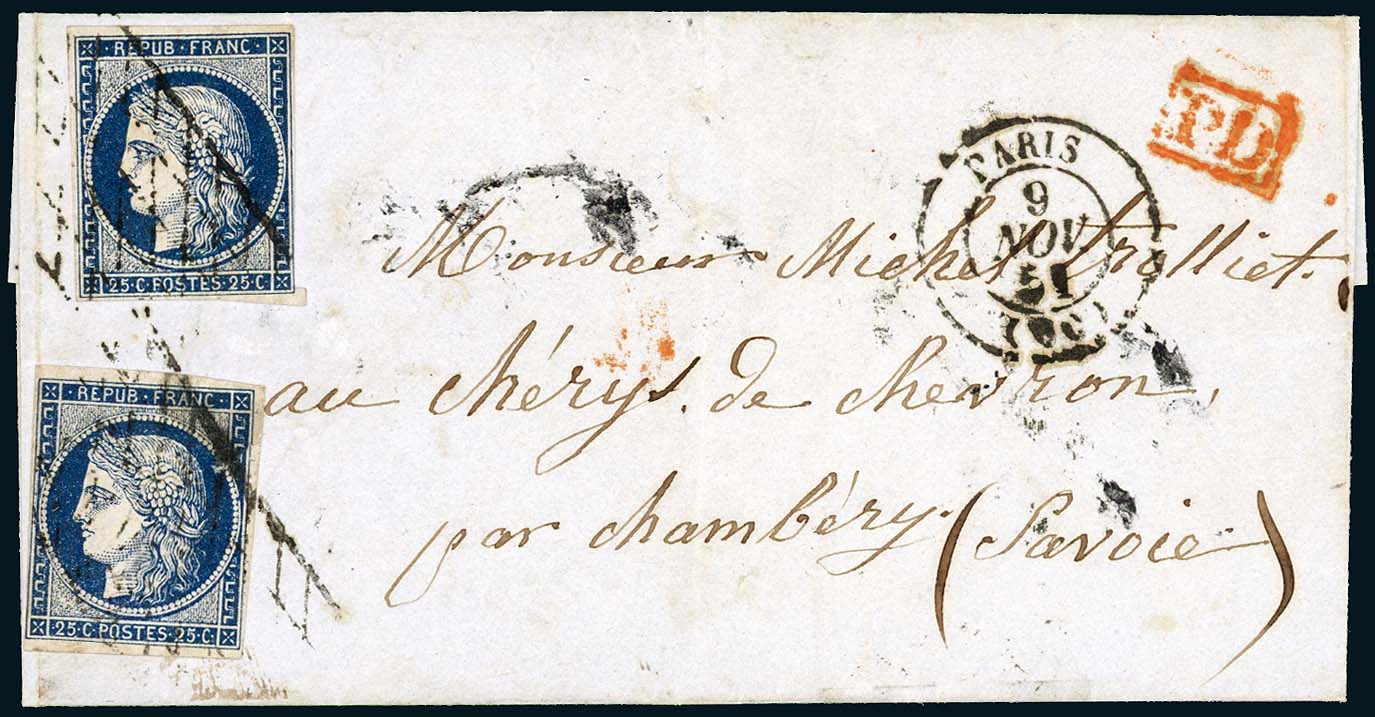 REPUB · FRANC
25 · C POSTES · 25 · C
REPUB · FRANC
25 · C POSTES · 25 · C
PARIS
9
NOV
51
PD
Monsieur Michel trolliet.
au chérys. de chevron,
par chambéry. (Savoie)